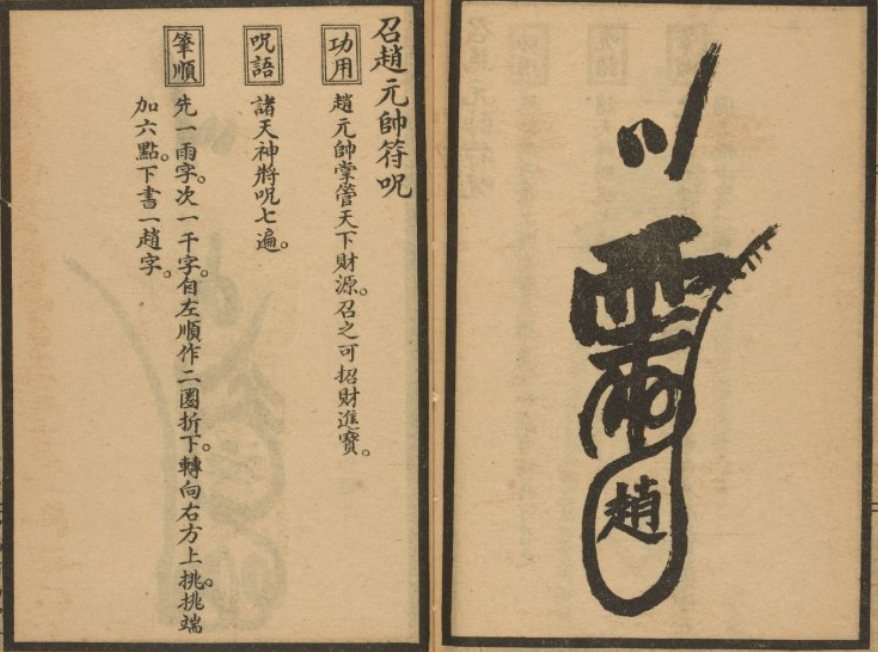 召趙元帥符呪
功用
趙元帥掌管天下財源。召之可招財進寶。
呪語
諸天神將呪七遍。
筆順
先一雨字。次一千字。自左順作二圈折下。轉向右方上挑。挑端
加六點。下書一趙字。
趙